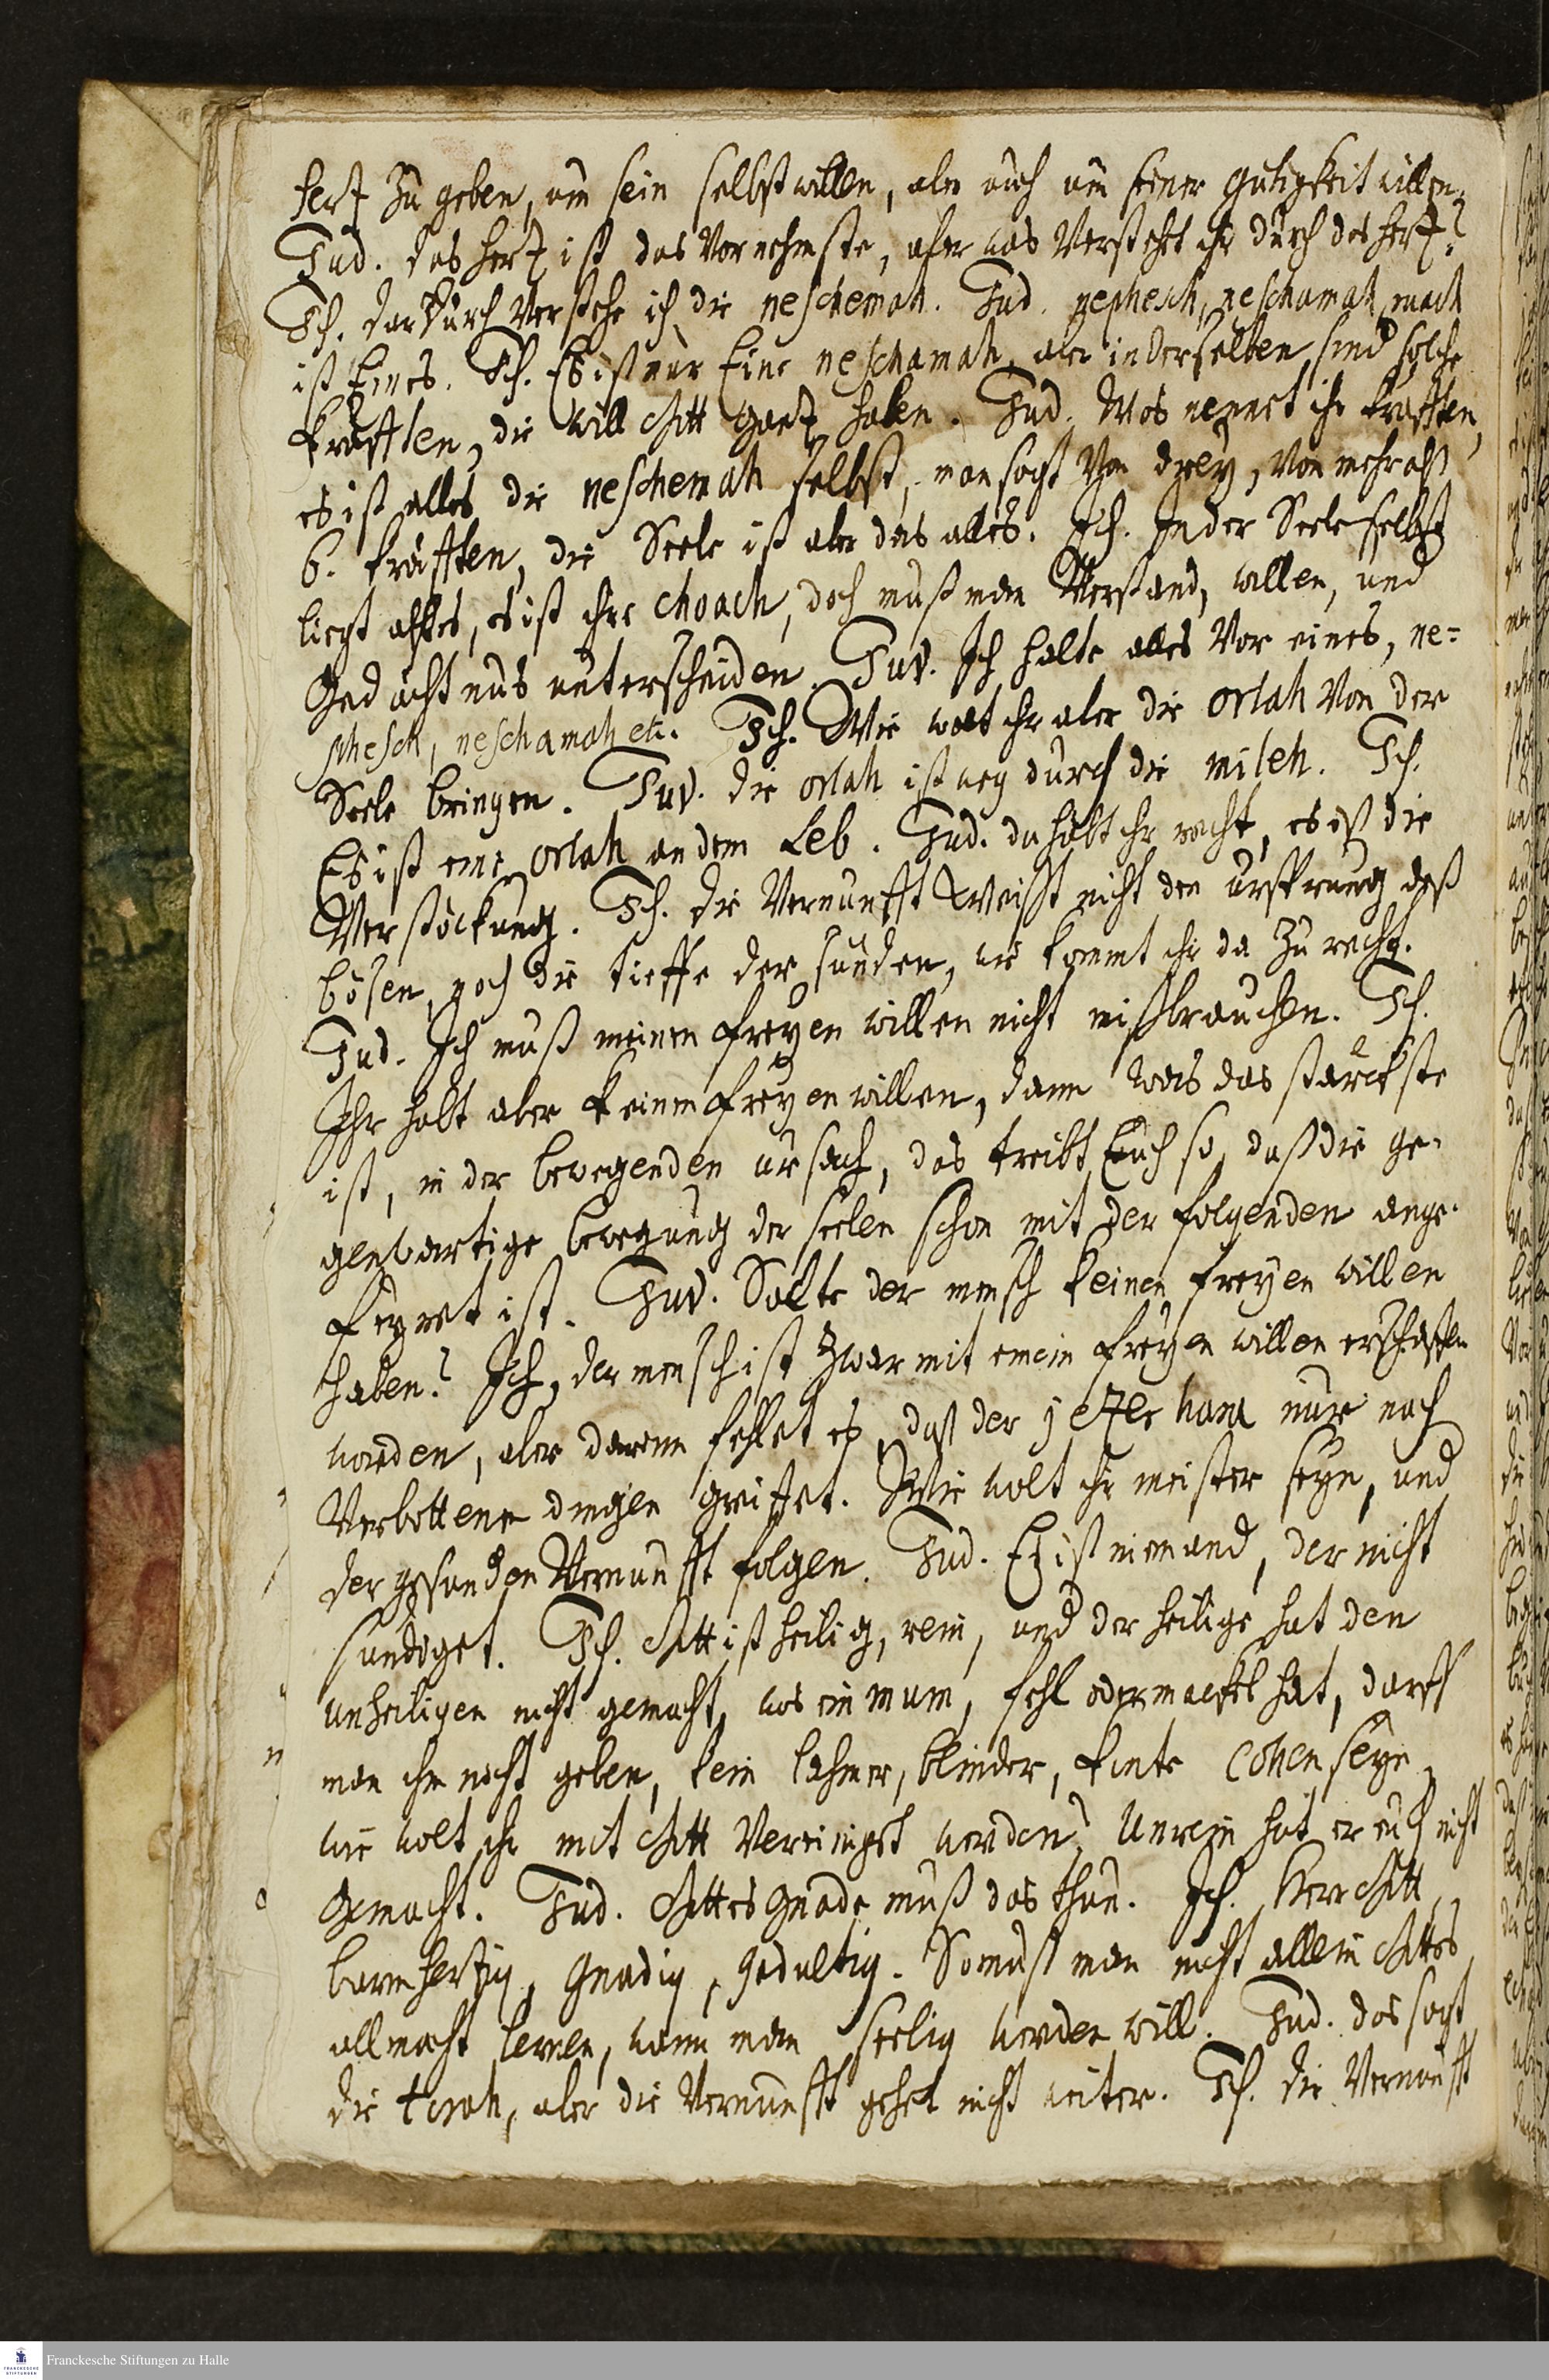 hertz zu geben, um sein selbst willen, aber auch um seiner gütigkeit willen.
Jud. das hertz ist das Vornehmste, aber was Verstehet ihr durch das hertz?
Ich. dardurch Verstehe ich die neschemah. Jud. nephesch, neschamah, ruach
ist Eines. Ich. Es ist nur Eine neschamah, aber in derselben sind solche
kräfften, die will Gott gantz haben. Jud. Was nennet ihr kräfften,
es ist alles die neschemah selbst, man sagt Von drey, Von mehr alß
6. kräfften, die Seele ist aber das alles. Ich. In der Seele selbst
liegt alles, es ist ihre choach, doch muß man Verstand, willen, und
Gedächtnus unterscheiden. Jud. Ich halte alles Vor eines, ne-
phesch, neschamah etc. Ich. Wie wolt ihr aber die orlah Von der
Seele bringen. Jud. die orlah ist weg durch die mileh. Ich.
Es ist eine orlah an dem Leb. Jud. da habt ihr recht, es ist die
Verstockung. Ich. die Vernunfft weist nicht den ursprung deß
bösen, noch die tieffe der sünden, wie kommt ihr da zu recht.
Jud. Ich muß meinen freyen willen nicht mißbrauchen. Ich.
Ihr habt aber keinen freyen willen, dann was das stärckste
ist, in der bewegenden ursach, das treibt Euch so, daß die ge-
genwärtige bewegung der seelen schon mit der folgenden ange-
feyret ist. Jud. Solte der mensch keinen freyen willen
haben? Ich, der mensch ist zwar mit einem freyen willen erschaffen
worden, aber darinn fehlet es, daß der jezer hara nur nach
Verbottenen dingen greiffet. Wie wolt ihr meister seyn, und
der gesunden Vernunfft folgen. Jud. Es ist niemand, der nicht
sündiget. Ich. Gott ist heilig, rein, und der heilige hat den
unheiligen nicht gemacht, was ein mum, fehl oder mackel hat, darff
man ihm nicht geben, kein lahmer, blinder, konte Cohen seyn,
wie wolt ihr mit Gott Vereinigst werden? Unrein hat er euch nicht
Gemacht. Jud. Gottes Gnade muß das thun. Ich. Herr Gott,
barmhertzig, Gnädig, gedultig. So muß man nicht allein Gottes
allmacht lernen, wann man seelig werden will. Jud. das sagt
die torah, aber die Vernunfft gehet nicht weiter. Ich. die Vernunfft
Franckesche Stiftungen zu Halle